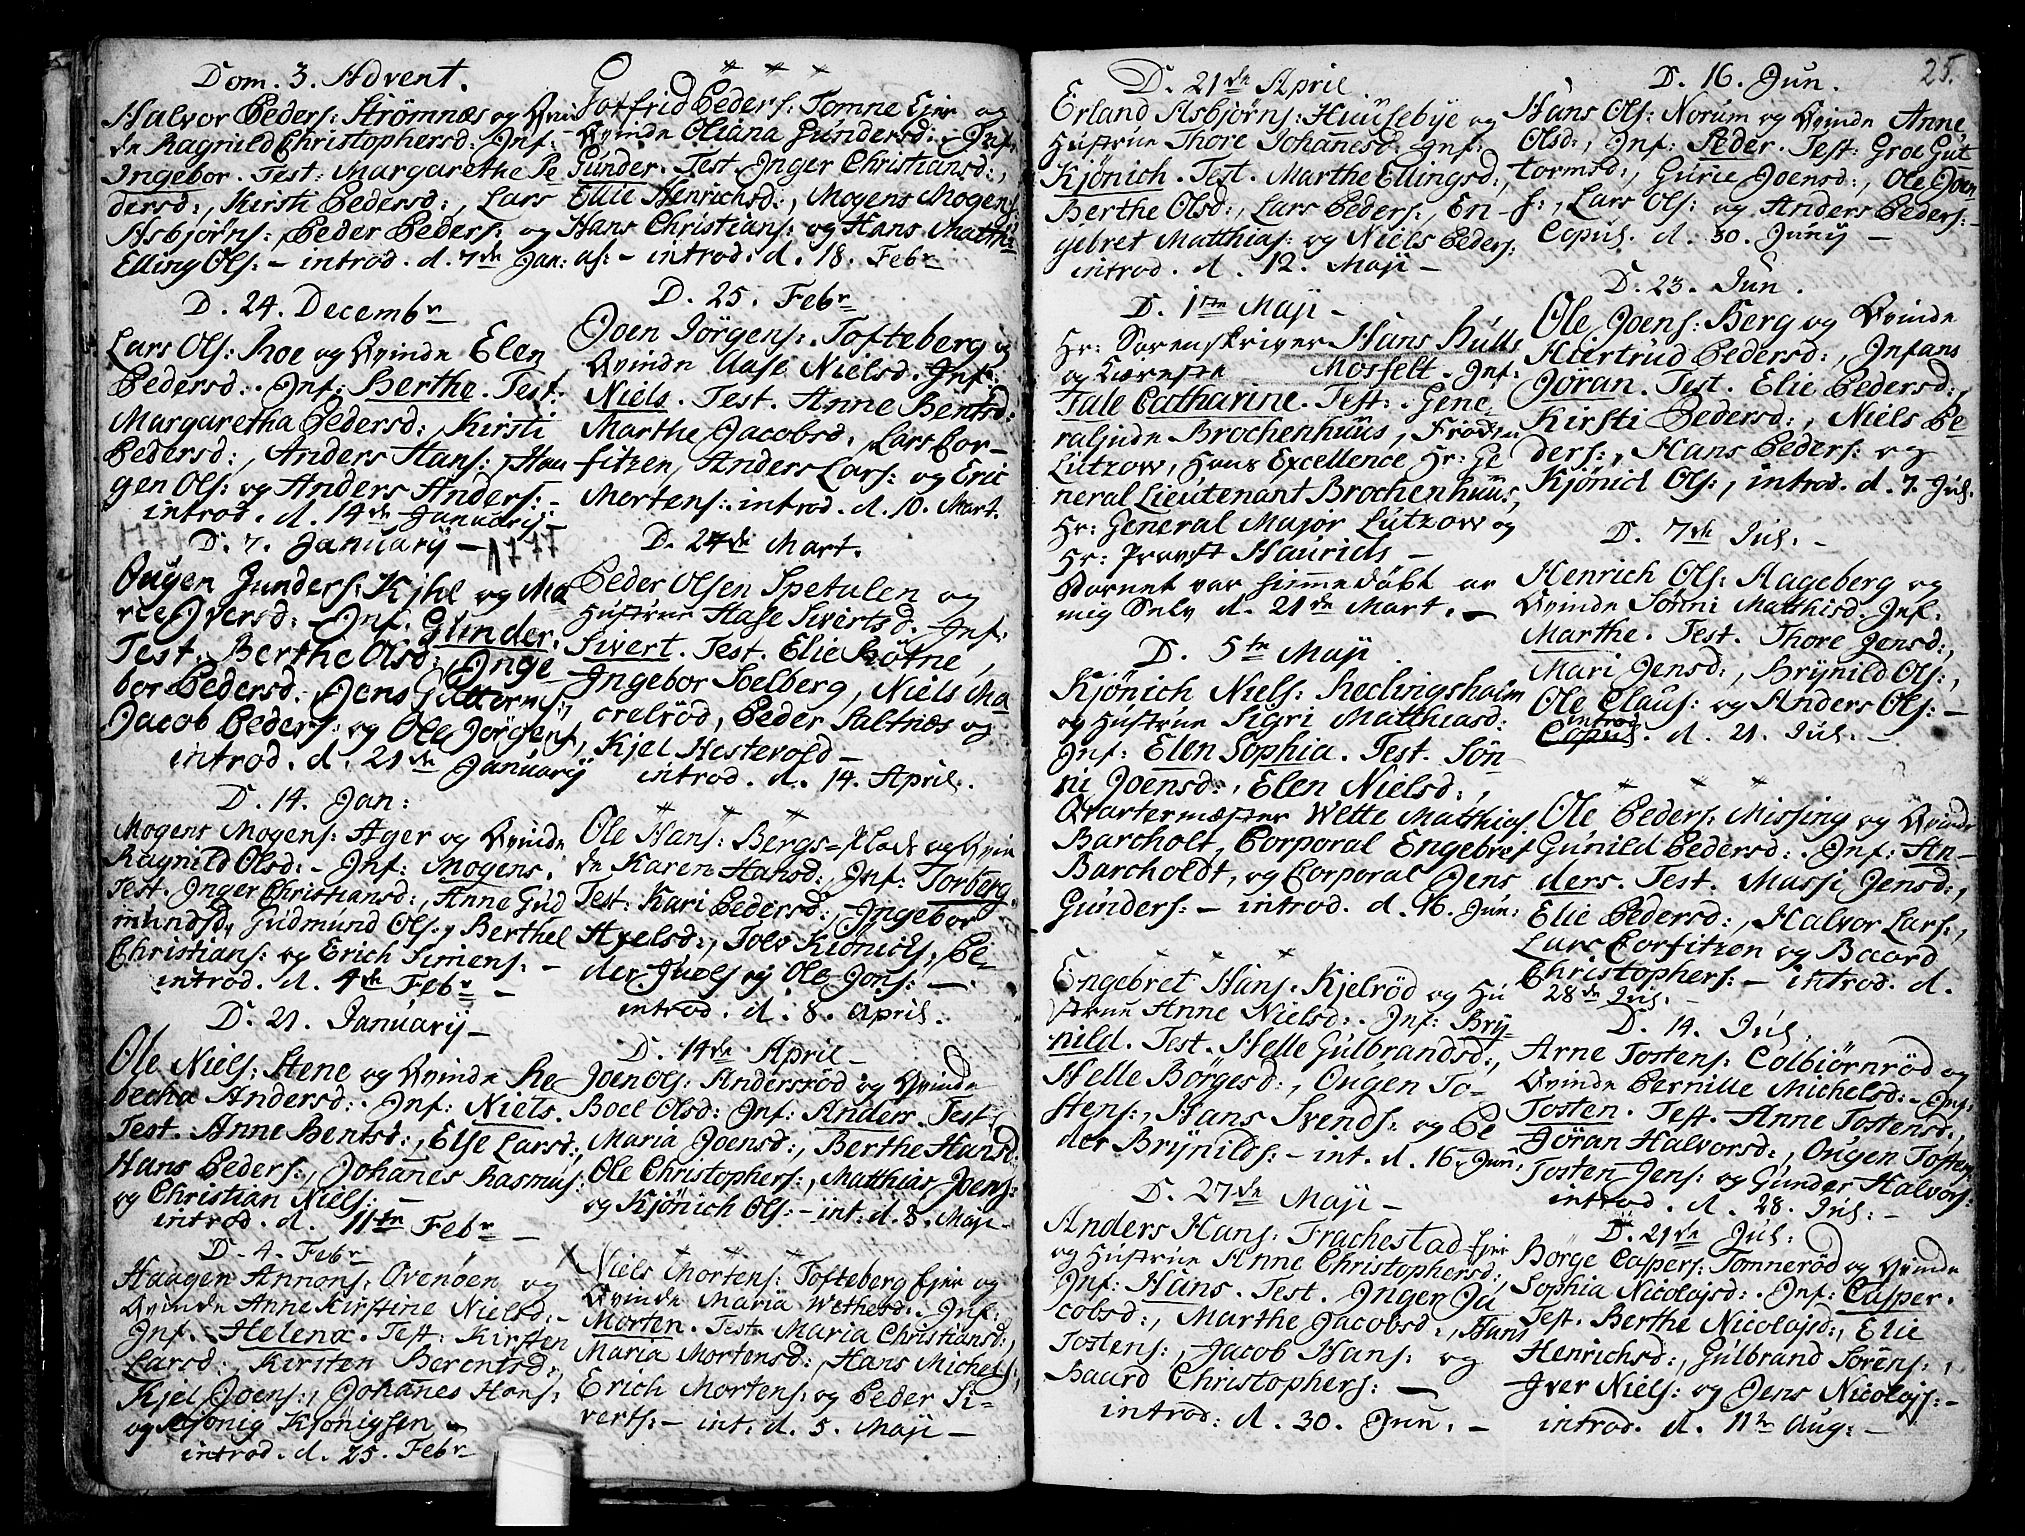 Dom. 3. Advent.
Halvor Peders: Strömnæs og Qvin-
de Ragnild Christophersd: Inf:
Ingebor. Test: Margarethe Pe
dersd:, Kirsti Pedersd:, Lars
Asbjörns:, Peder Peders: og
Elling Ols: - introd. d. 7de Jan:
D. 24. Decembr
Lars Ols: Roe og Qvinde Elen
Pedersd:. Inf: Berthe. Test:
Margaretha Pedersd:, Kirsti
Pedersd:, Anders Hans:, Hau
gen Ols: og Anders Anders: -
introd. d. 14de Januarij -
D. 7. Januarij - 1777
Ougen Gunders: Kjhl og Ma
rie Iversd: - Inf: Gunder.
Test. Berthe Olsd:, Inge
bor Pedersd:, Jens Guttorms:,
Jacob Peders: og Ole Jörgens,
introd. d. 21de Januarij
D. 14. Jan:
Mogens Mogens: Ager og Qvinde
Ragnild Olsd: - Inf: Mogens.
Test. Inger Christiansd:, Anne Gud
mundsd, Gudmund Ols:, Berthel
Christians: og Erich Simens: -
introd. d. 4de Febr -
D. 21. Januarij -
Ole Niels: Stene og Qvinde Re
becha Andersd:. Inf: Niels.
Test. Anne Bentsd:, Else Larsd:,
Hans Peders:, Johanes Rasmus:
og Christian Niels: -
introd. d. 11te Febr -
D. 4. Febr
Haagen Annons: Ovenöen og
Qvinde Anne Kirstine Nielsd: -
Inf. Helena. Test: Kirsten
Larsd:, Kirsten Berentsd:,
Kjel Joens:, Johanes Hans:
og Kjönig Kjönigsen -
introd. d. 25. Febr
* * *
Gotfrid Peders: Tomne Ejer og
Qvinde Oliana Gundersd: - Inf:
Gunder. Test. Inger Christiansd:,
Elie Henrichsd:, Mogens Mogens:
Hans Christians: og Hans Matthi
as: - introd: d. 18. Febr
D. 25. Febr
Joen Jörgens: Tofteberg og
Qvinde Aase Nielsd. Inf:
Niels. Test. Anne Bentsd:
Marthe Jacobsd:, Lars Cor-
fitzen, Anders Lars: og Eric
Mortens: introd. d. 10. Mart.
D. 24de Mart.
Peder Olsen Spetalen og
Hustrue Hase Sivertsd. Inf:
Sivert. Test. Elie Röine,
Ingebor Soelberg, Niels Ma
crelröd, Peder Saltnæs og
Kjel Hesterold -
introd. d. 14. April.
* * *
Ole Hans: Bergs=Plads og Qvin
de Karen Hansd:, Inf: Torberg.
Test: Kari Pedersd:, Ingebor
Axelsd:, Tolv Kiönichs:, Pe-
der Juels og Ole Jons: -
introd. d. 8. April.
D. 14de April -
Joen Ols: Androsröd og Qvinde
Boel Olsd: Inf: Anders. Test:
Maria Joensd:, Berthe Hansd:
Ole Christophers:, Matthias Joens:
og Kjönich Ols: - int: d. 8. Maji -
* * *
Niels Mortens: Tofteberg Ejer og
Qvinde Maria Wethesd: - Inf:
Morten. Test: Maria Christiansd:,
Maria Mortensd:, Hans Michels:,
Erich Mortens: og Peder Si-
verts: - int: d. 5. Maji -
25.
D. 21de April.
Erland Asbjörns: Huusebye og
Hustrue Thore Johanesd: Inf:
Kjönich. Test. Marthe Ellingsd:,
Berthe Olsd:, Lars Peders:, En-
gebret Matthias: og Niels Peders:
introd. d. 12. Maji -
D. 1te Maji -
Hr: Sorenskriver Hans Huus
og Kiæreste Morfelt. Inf:
Tale Catharine. Test: Gene-
ralinde Brochenhuus, Fröden
Lützow, Hans Excellence Hr: Ge
neral Lieutenant Brochenhuus,
Hr: General Major Lützow og
Hr: Provst Haurids -
Barnet var hiemme döbt av
mig Selv d. 21de Mart. -
D. 5te Maji
Kjönich Niels: Reclingsholm
og Hustrue Sigri Matthiasd:
Inf: Elen Sophia. Test. Sön-
ni Joensd:, Elen Nielsd:,
Qvartermæster Wette Matthias
Barcholt, Corporal Engebret
Barcholdt, og Corporal Jens
Gunders: - introd. d. 16. Jun:
* * *
Engebret Hans: Kjelröd og Hu
strue Anne Nielsd:. Inf: Brÿ-
nild. Test. Helle Gulbrandsd:,
Helle Börgesd:, Ougen To-
stens:, Hans Svends: og Pe
der Brÿnilds: - int. d. 16. Jun:
D. 27de Maji -
Anders Hans: Frachestad Ejer
og Hustrue Anne Christophersd:,
Inf: Hans. Test. Inger Ja
cobsd:, Marthe Jacobsd:, Hans
Tostens:, Jacob Hans: og
Baard Christophers: -
introd: d. 30. Jun: -
D. 16. Jun.
Hans Ols: Norum og Qvinde Anne
Olsd:, Inf: Peder. Test: Groe Gut
tormsd:, Gurie Joensd:, Ole Joen
s:, Lars Ols: og Anders Peders: -
Copul. d. 30. Junij -
D. 23. Jun.
Ole Joens: Berg og Qvinde
Kiertrud Pedersd:, Infans
Jöran. Test. Elie Pedersd:,
Kirsti Pedersd:, Niels Pe
ders:, Hans Peders: og
Kjönich Ols:, introd. d. 7. Jul.
D. 7de Jul. -
Henrich Ols: Hageberg og
Qvinde Sönni Matthisd: Inf.
Marthe. Test. Thore Jensd:,
Mari Jensd:, Brÿnild Ols:,
Ole Claus: og Anders Ols: -
introd
Copul. d. 21. Jul. -
* * *
Ole Peders: Missing og Qvinde
Gunild Pedersd:. Inf: An-
ders. Test. Masji Jensd:,
Elie Pedersd:, Halvor Lars:,
Lars Corfitzen og Baard
Christophers: - introd. d.
28de Jul. -
D. 14. Jul.
Arne Tostens: Colbiörnröd og
Qvinde Pernille Michelsd: - Inf:
Tosten. Test. Anne Tostensd:,
Jöran Halvorsd:, Ougen Tostens,
Tosten Jens: og Gunder Halvors:
introd. d. 28. Jul: -
D. 21de Jul:
Börge Caspers: Tomneröd og Qvinde
Sophia Nicolajsd:. Inf: Casper.
Test. Berthe Nicolajsd:, Elie
Henrichsd:, Gulbrand Sörens:,
Iver Niels: og Jens Nicolajs: -
introd. d. 11te Aug: -